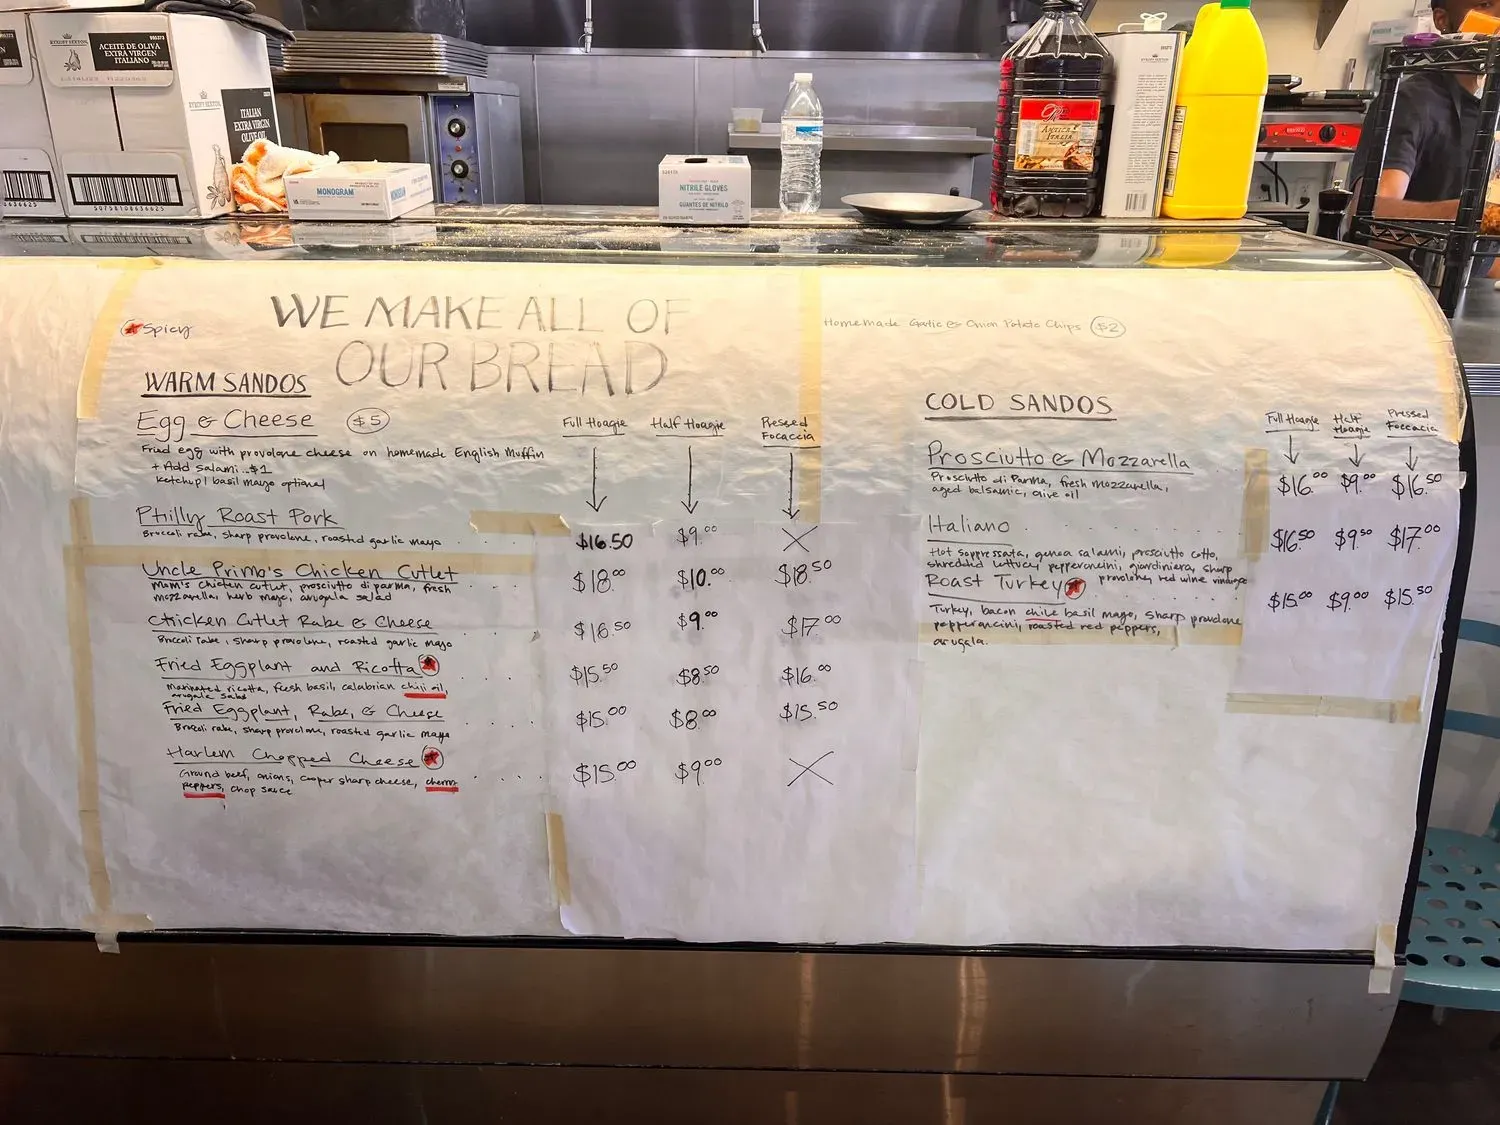 RYKOFF SEXTON
ACEITE DE OLIVA
EXTRA VIRGEN
ITALIANO
ITALIAN
EXTRA VIRGIN
OLIVE OIL
MONOGRAM
NITRILE GLOVES
GUANTES DE NITRILO
ANTICA
ITALIA
Spicy
WE MAKE ALL OF
OUR BREAD
Homemade Garlic & Onion Potato Chips $2
WARM SANDOS
Full Hoagie Half Hoagie Pressed Focaccia
Egg & Cheese $5
Fried egg with provolone cheese on homemade English Muffin
+ Add salami..$1
Ketchup / basil mayo optional
Philly Roast Pork $16.50 $9.00 X
Broccoli rabe, sharp provolone, roasted garlic mayo
Uncle Primo's Chicken Cutlet $18.00 $10.00 $18.50
Mom's chicken cutlet, prosciutto di parma, fresh
mozzarella, herb mayo, arugula salad
Chicken Cutlet Rabe & Cheese $16.50 $9.00 $17.00
Broccoli rabe, sharp provolone, roasted garlic mayo
Fried Eggplant and Ricotta $15.50 $8.50 $16.00
Marinated ricotta, fresh basil, calabrian chili oil,
arugula salad
Fried Eggplant, Rabe, & Cheese $15.00 $8.00 $15.50
Broccoli rabe, sharp provolone, roasted garlic mayo
Harlem Chopped Cheese $15.00 $9.00 X
Ground beef, onions, cooper sharp cheese, cherry
peppers, chop sauce
COLD SANDOS
Full Hoagie Half Hoagie Pressed Foccacia
Prosciutto & Mozzarella $16.00 $9.00 $16.50
Prosciutto di Parma, fresh mozzarella,
aged balsamic, olive oil
Italiano $16.50 $9.50 $17.00
Hot soppressata, genoa salami, prosciutto cotto,
shredded lettuce, pepperoncini, giardiniera, sharp
provolone, red wine vinaigre
Roast Turkey $15.00 $9.00 $15.50
Turkey, bacon chile basil mayo, sharp provolone
pepperoncini, roasted red peppers,
arugula.